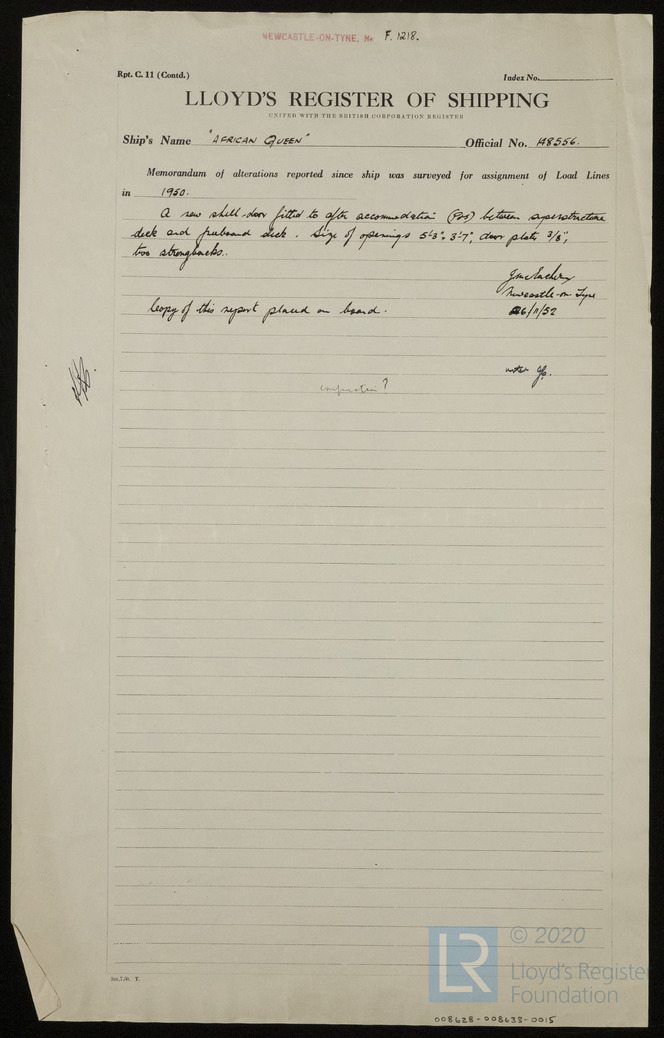 NEWCASTLE-ON-TYNE. No F.1218.
Rpt. C. 11 (Contd.)
Index No.
LLOYD'S REGISTER OF SHIPPING
UNITED WITH THE BRITISH CORPORATION REGISTER
Ship's Name "AFRICAN QUEEN" Official No. 148556.
Memorandum of alterations reported since ship was surveyed for assignment of Load Lines
in 1950.
A new shell-door fitted to after accommodation (Pos) between superstructure
deck and freeboard deck. Size of openings 5'-3" x 3'-7", door plate 3/8",
two strongbacks.
Newcastle-on-Tyne
26/11/52
Copy of this report placed on board.
noted
?
2m,7,50. T.
LR
© 2020
Lloyd's Register
Foundation
008628-008633-0015